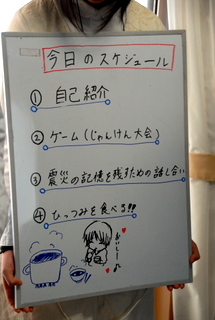 今日のスケジュール
① 自己紹介
② ゲーム(じゃんけん大会)
③ 震災の記憶を残すための話し合い
④ ひっつみを食べる!!
おいしー♪